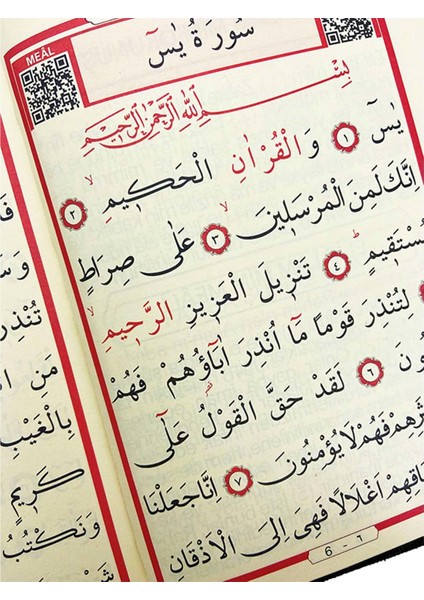 MEÂL
سُورَةُ يٰسٓ
بِسْمِ اللّٰهِ الرَّحْمٰنِ الرَّحِيمِ
يٰسٓ ١ وَالْقُرْاٰنِ الْحَكٖيمِ ٢
اِنَّكَ لَمِنَ الْمُرْسَلٖينَ ٣ عَلٰى صِرَاطٍ
مُسْتَقٖيمٍ ٤ تَنْزٖيلَ الْعَزٖيزِ الرَّحٖيمِ
لِتُنْذِرَ قَوْمًا مَٓا اُنْذِرَ اٰبَٓاؤُهُمْ فَهُمْ
ُونَ ٦ لَقَدْ حَقَّ الْقَوْلُ عَلٰٓى
ثَرِهِمْ فَهُمْ لَا يُؤْمِنُونَ ٧ اِنَّا جَعَلْنَا
نَاقِهِمْ اَغْلَالًا فَهِىَ اِلَى الْاَذْقَانِ
6 - ٦
تُنْذِرْ
مَنِ
بِالْغَيْبِ
كَرٖيمٍ
وَنَكْتُبُ